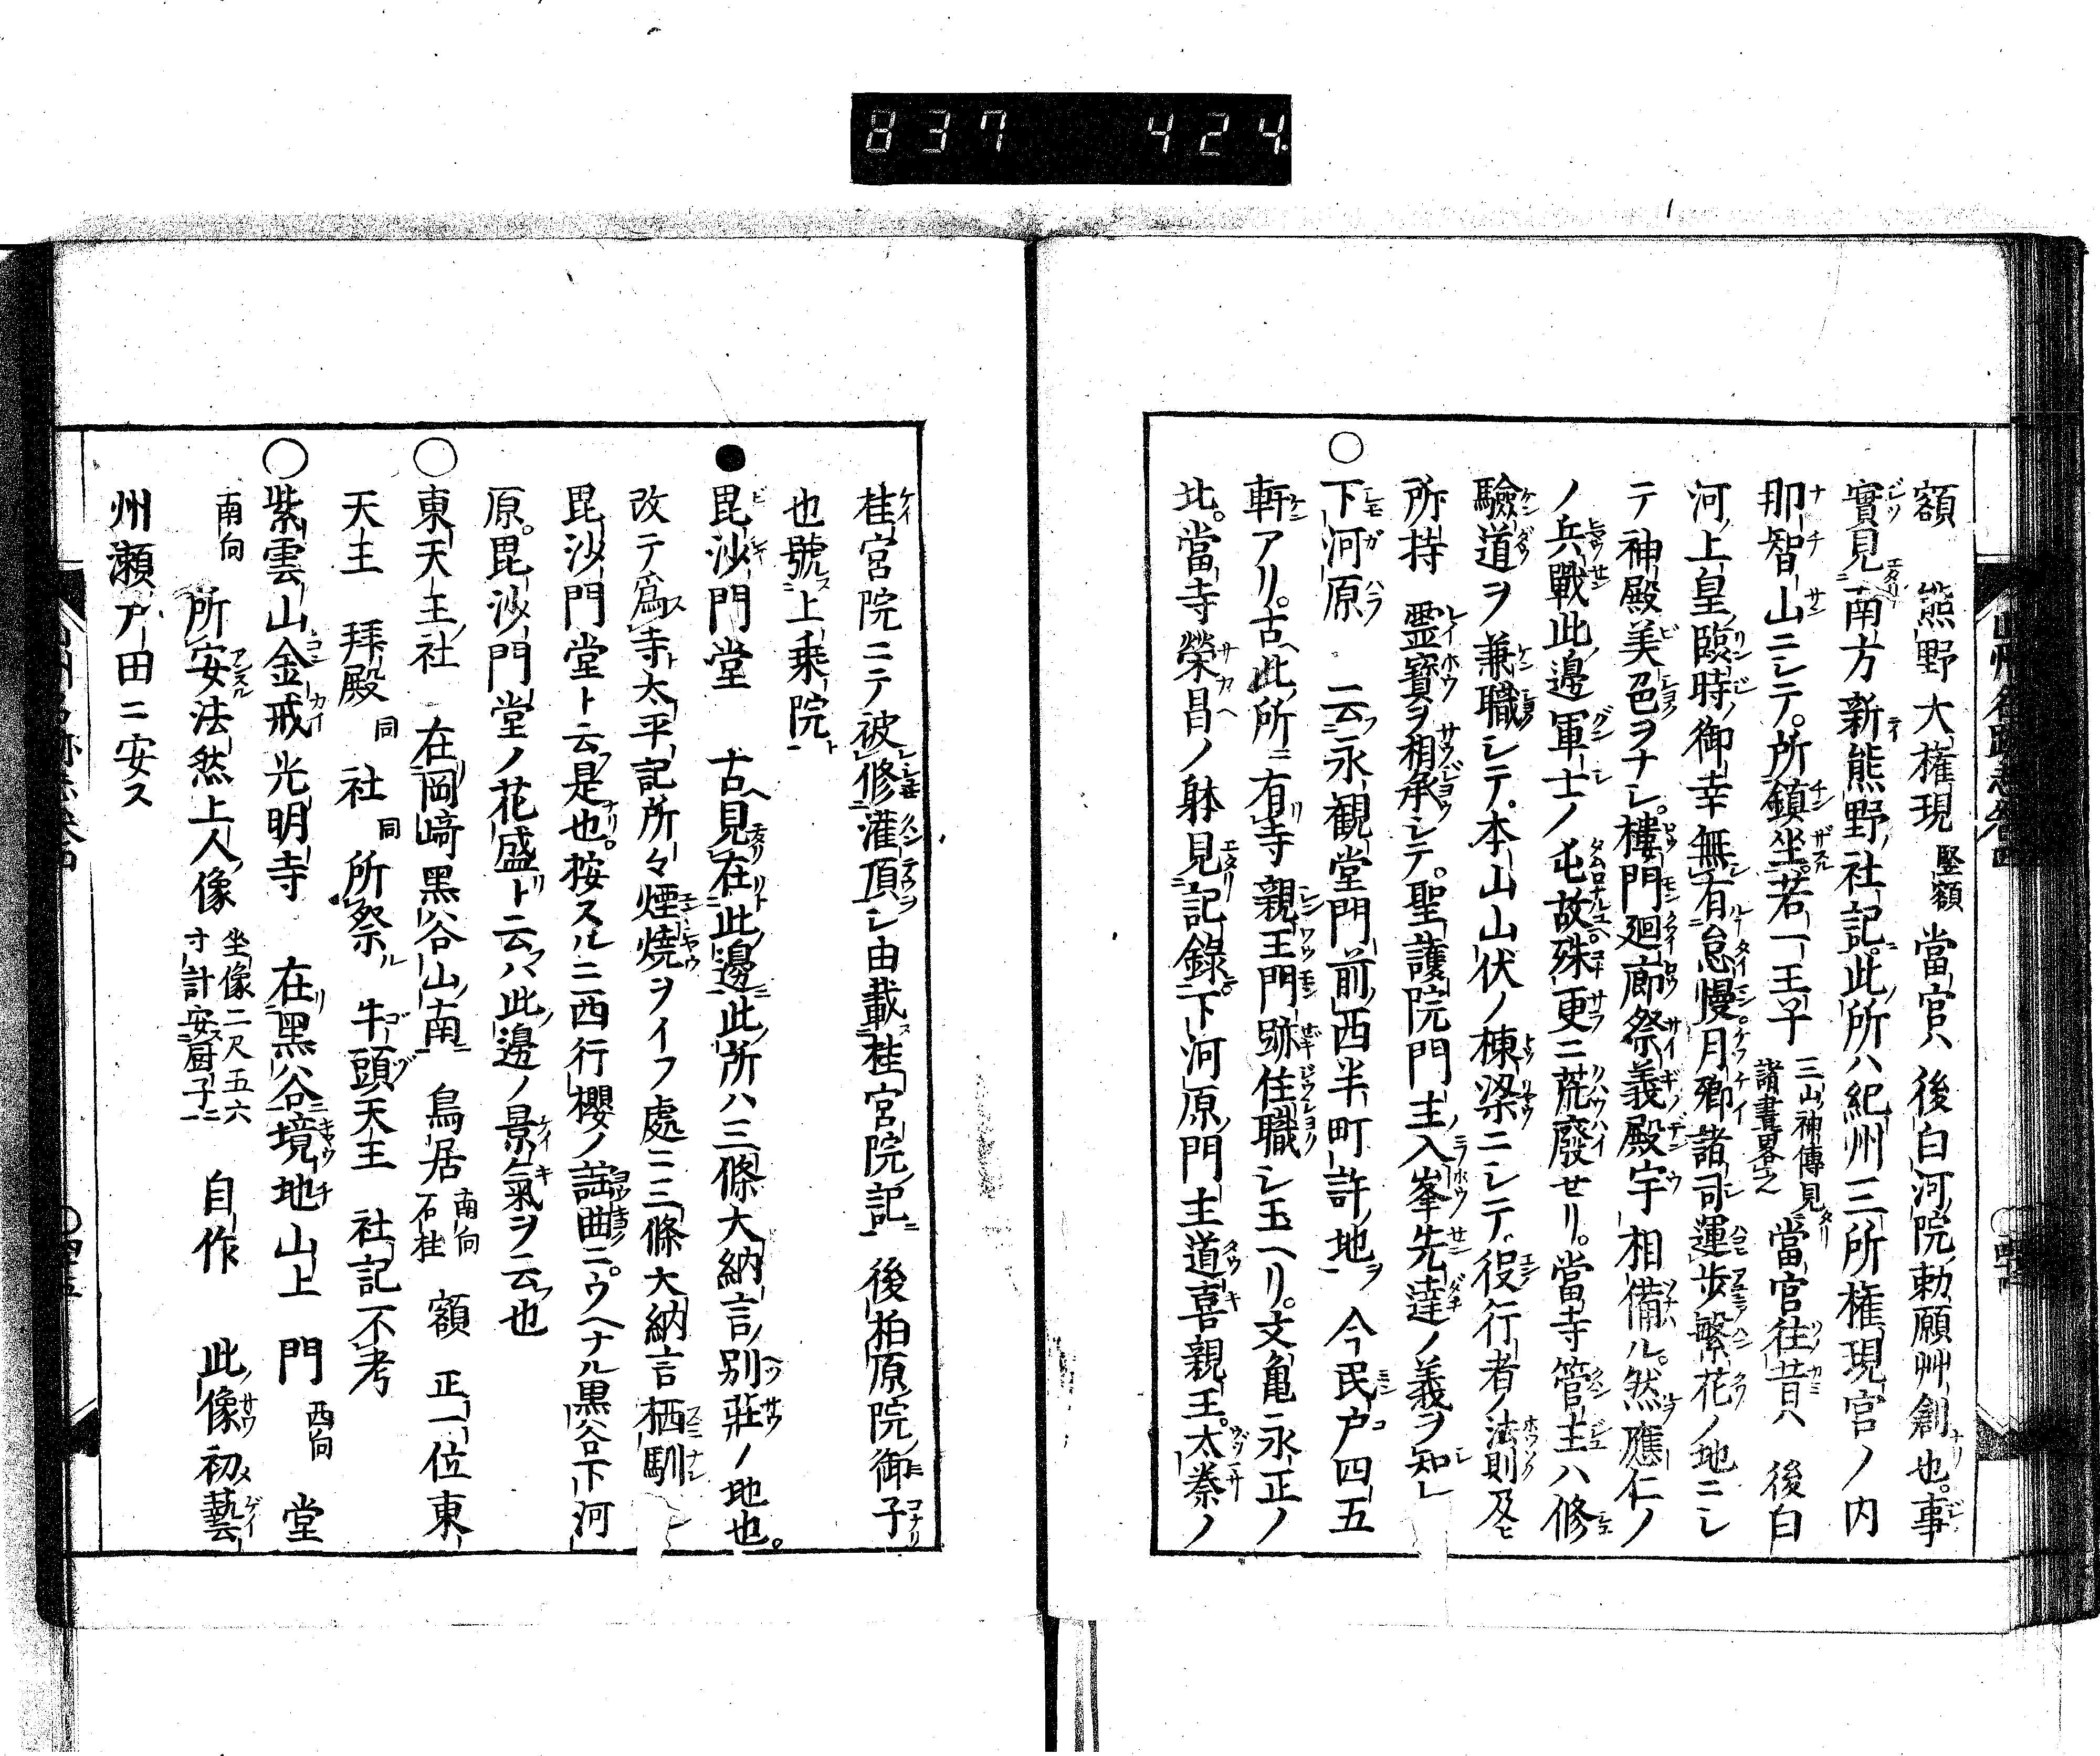 837 424
額　熊野大権現 竪額 當宮ハ後白河院勅願艸創也。事
實見南方新熊野社記。此所ハ紀州三所権現宮ノ内
那智山ニシテ。所鎮坐。若一王子 三山神傳見諸書畧之 當宮往昔ハ後白
河上皇臨時御幸無有怠慢月卿諸司運歩繁花ノ地ニシ
テ神殿美邑ヲナシ。樓門廻廊祭義殿宇相備ル。然應仁ノ
ノ兵戰此邊軍士ノ屯故殊更ニ荒廢セリ。當寺管主ハ修
驗道ヲ兼職シテ。本山山伏ノ棟梁ニシテ。役行者ノ法則及ヒ
所持靈寳ヲ相承シテ。聖護院門主入峯先達ノ義ヲ知レ
○下河原　云永観堂門前西半町許地ヲ　今民戸四五
軒アリ。古此所ニ有寺親王門跡住職シ玉ヘリ。文亀永正ノ
比。當寺榮昌ノ躰見記録。下河原門主道喜親王。太秦ノ
桂宮院ニテ被修灌頂シ由載桂宮院記　後柏原院御子
也號上乗院
●毘沙門堂　古見在此邊此所ハ三條大納言別莊ノ地也。
改テ爲寺太平記所々煙焼ヲイフ處ニ三條大納言栖馴シ
毘沙門堂ト云是也。按スルニ西行櫻ノ謡曲ニウヘナル黒谷下河
原。毘沙門堂ノ花盛ト云ハ此邊ノ景氣ヲ云也
○東天王社　在岡﨑黒谷山南　鳥居 南向石柱 額　正一位東
天王　拜殿 同 社 同 所祭　牛頭天王　社記不考
○紫雲山金戒光明寺　在黒谷境地山上　門 西向 堂
南向 所安法然上人像 坐像二尺五六寸計安厨子 自作　此像初藝
州瀬戸田ニ安ス